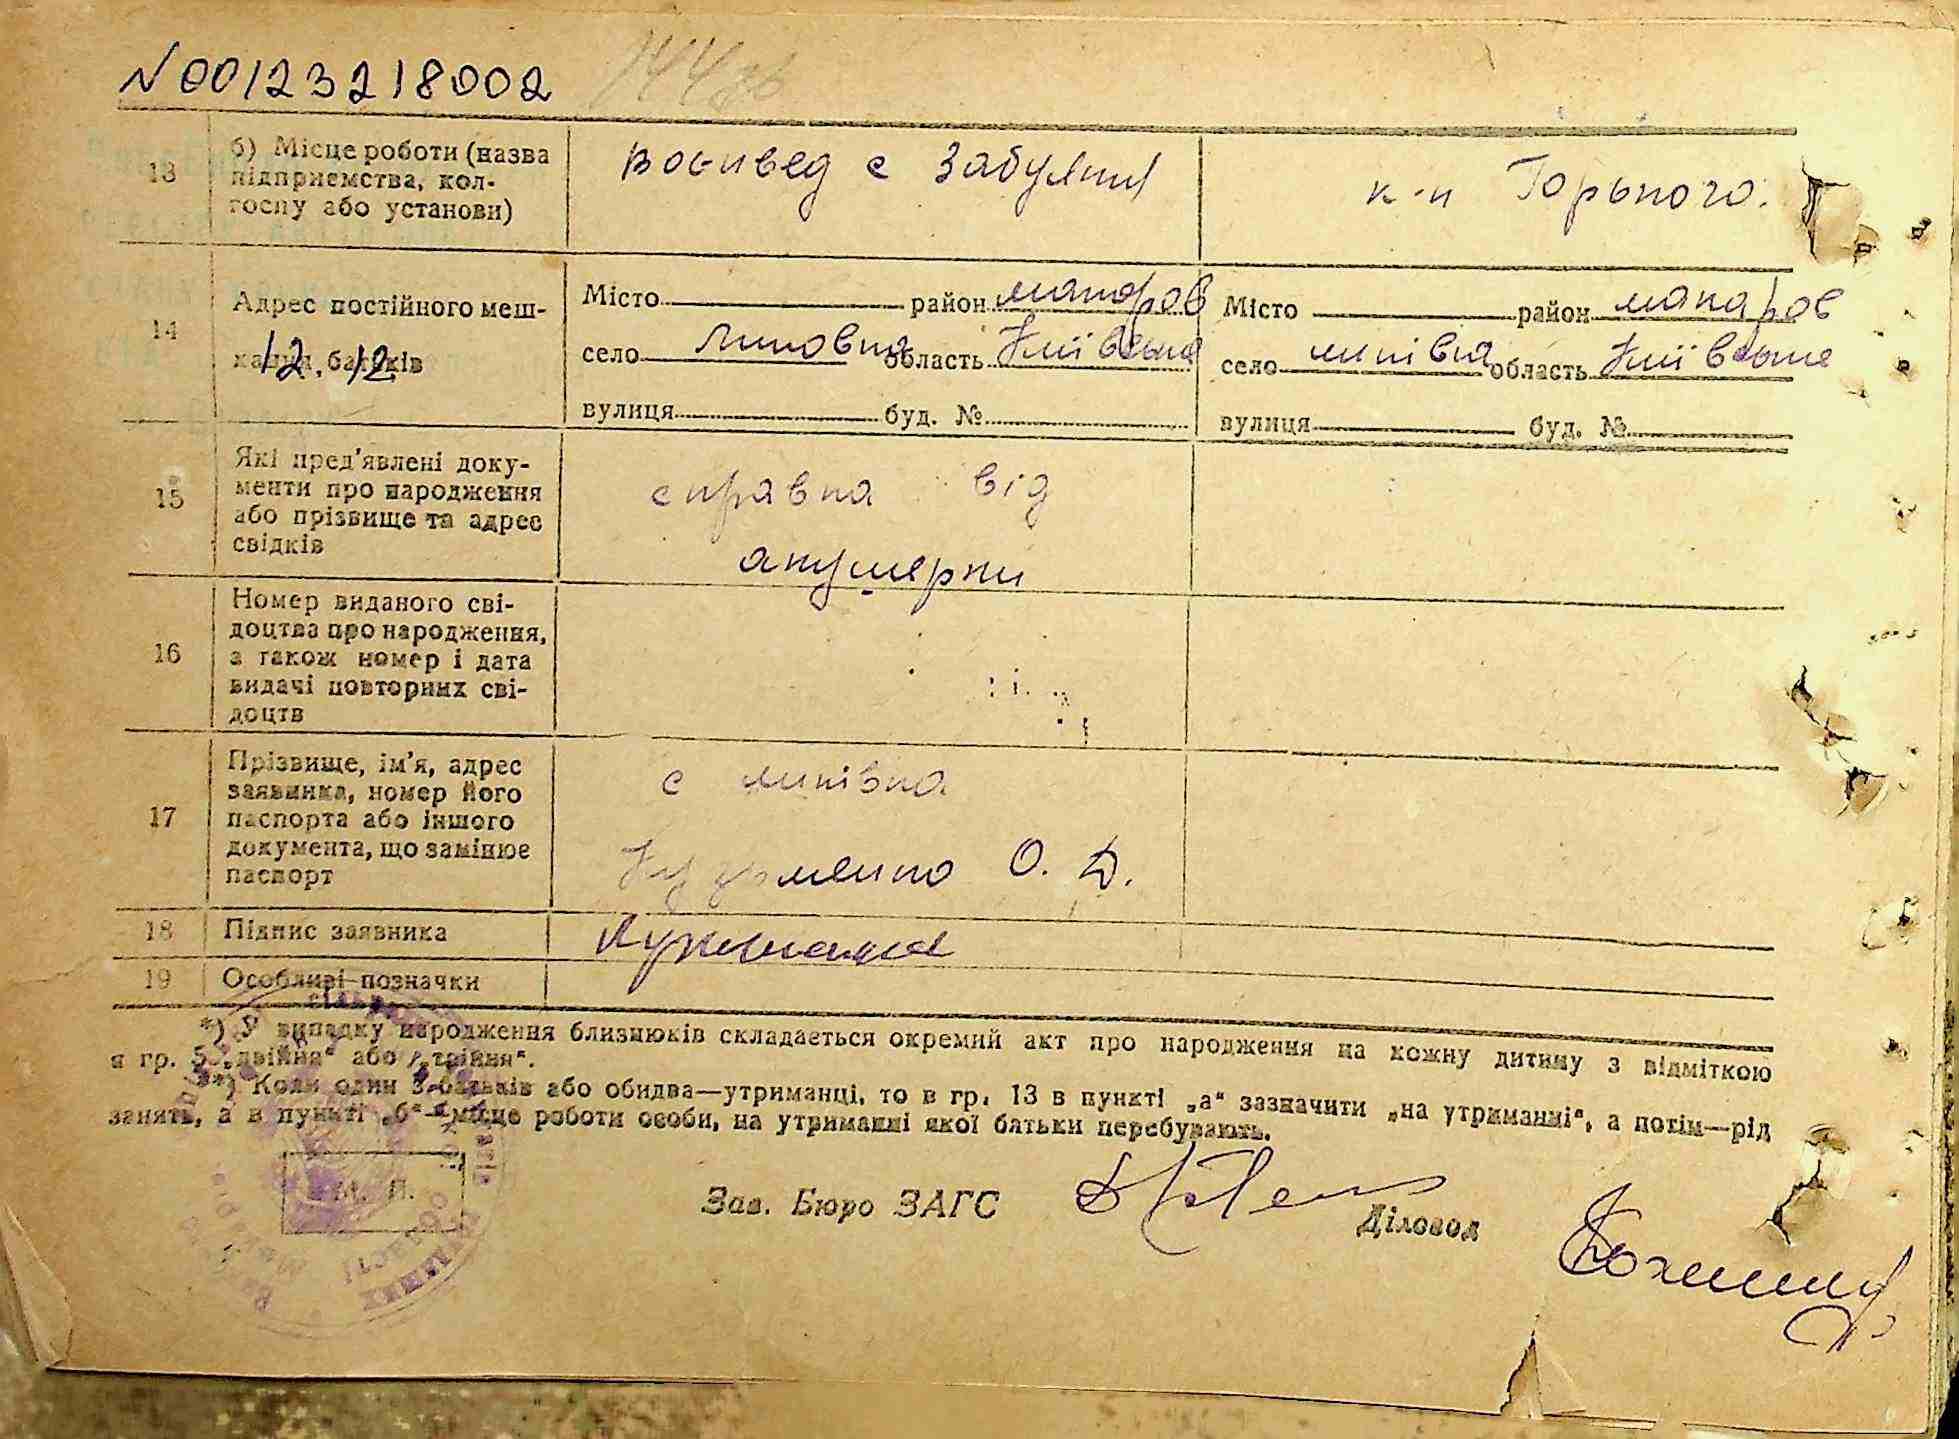 N 00123218002
13
б) Місце роботи (назва
підприємства, кол-
госпу або установи)
с Забуяння
к-п Горького.
14
Адрес постійного меш-
кання батьків
12. 12
Місто район макаров
село Липовка область Київська
вулиця буд. №
Місто район макаров
село липівка область Київська
вулиця буд. №
15
Які пред'явлені доку-
менти про народження
або прізвище та адрес
свідків
справка від
акушерки
16
Номер виданого сві-
доцтва про народження,
а також номер і дата
видачі повторних сві-
доцтв
17
Прізвище, ім'я, адрес
заявника, номер його
паспорта або іншого
документа, що замінює
паспорт
с липівка
Кузьменко О. Д.
18
Підпис заявника
19
Особливі позначки
*) У випадку народження близнюків складається окремий акт про народження на кожну дитину з відміткою
в гр. 5 „двійня“ або „трійня“.
**) Коли один з батьків або обидва—утриманці, то в гр. 13 в пункті „а“ зазначити „на утриманні“, а потім—рід
занять, а в пункті „б“—місце роботи особи, на утриманні якої батьки перебувають.
М. П.
Зав. Бюро ЗАГС
Діловод